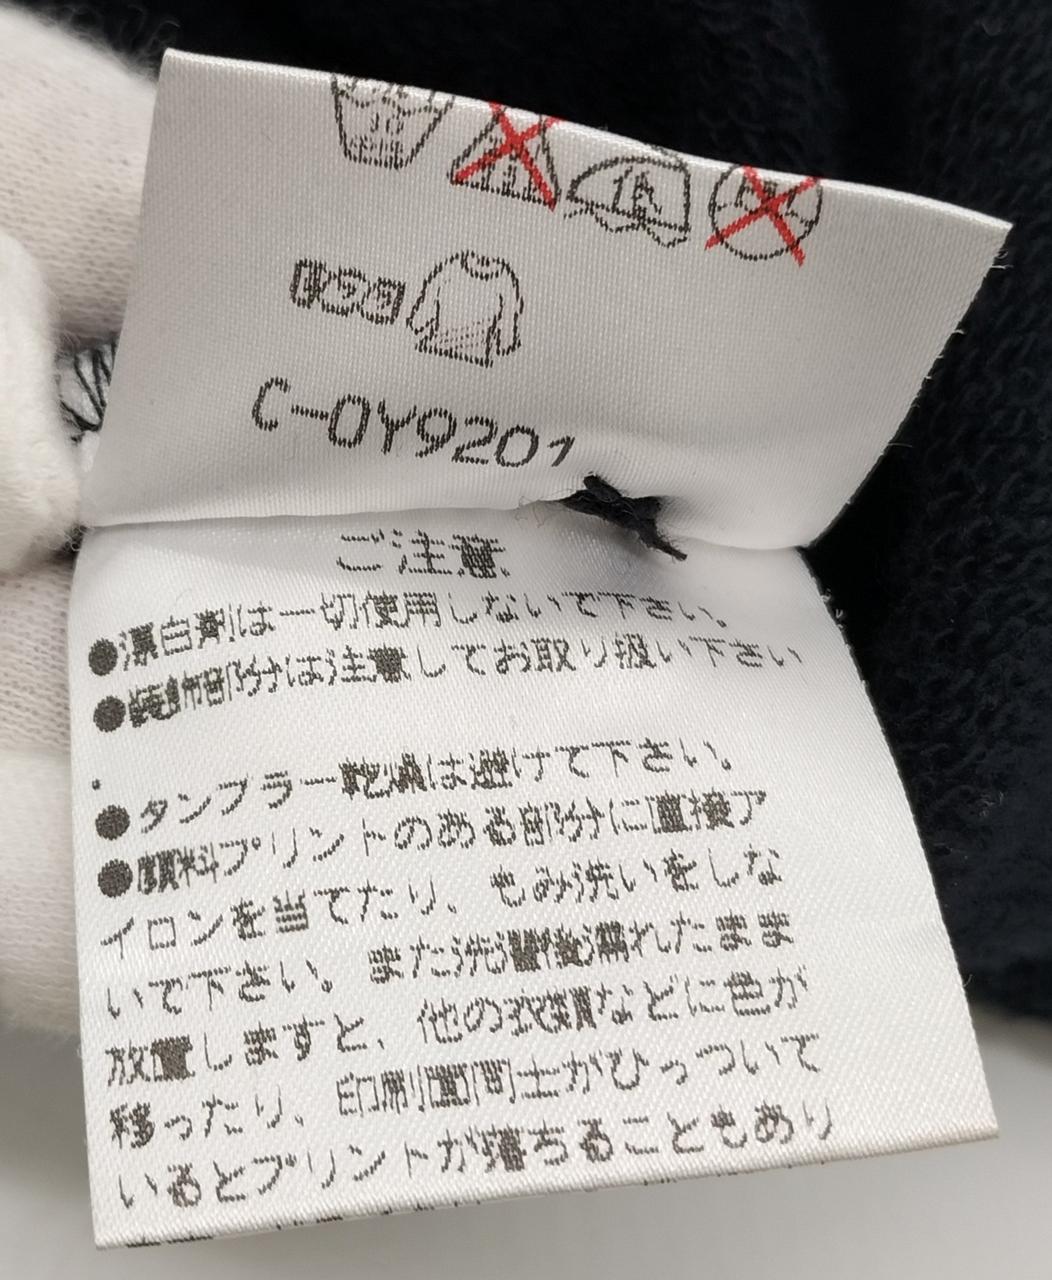 C-0Y9201
ご注意
●漂白剤は一切使用しないで下さい。
●装飾部分は注意してお取り扱い下さい
●タンブラー乾燥は避けて下さい。
●顔料プリントのある部分に直接ア
イロンを当てたり、もみ洗いをしな
いで下さい。また洗濯後濡れたまま
放置しますと、他の衣類などに色が
移ったり、印刷面同士がひっついて
いるとプリントが落ちることもあり